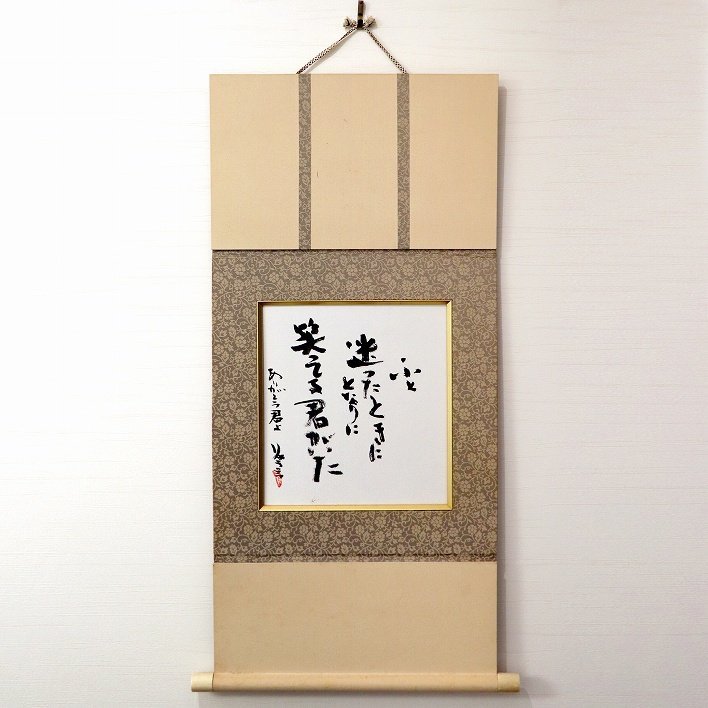 ふと
迷ったときに
となりに
笑ってる君がいた
ありがとう君よ